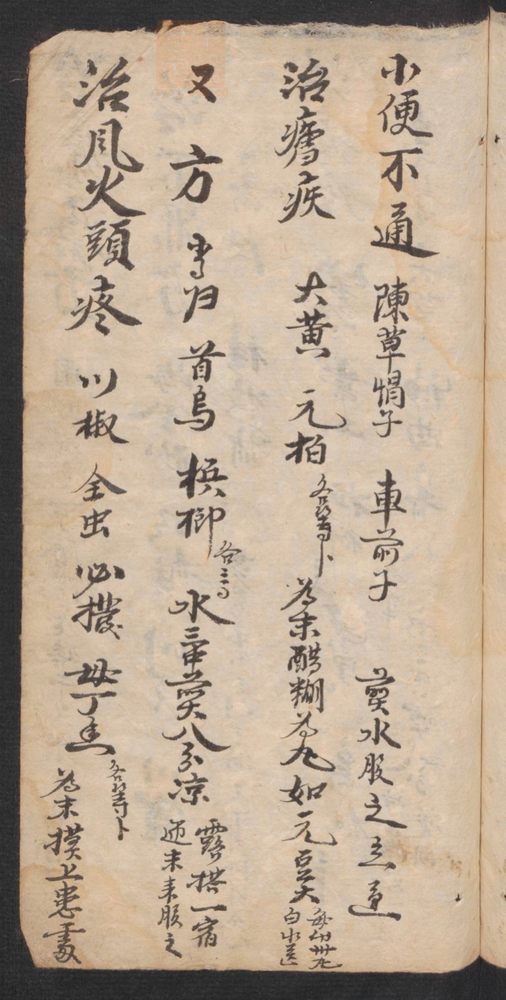 小便不通 陳草帽子 車前子 煎水服之立通
治瘧疾 大黃 元柏 各等卜 為末醋糊為丸如元豆大 每付卅丸 白水送
又方 当归 首烏 梹榔 各三 水三中煎八分凉 露搭一宿 迎未来服之
治風火頭疼 川椒 全虫 必撥 母丁香 各等卜 為末摸上患處